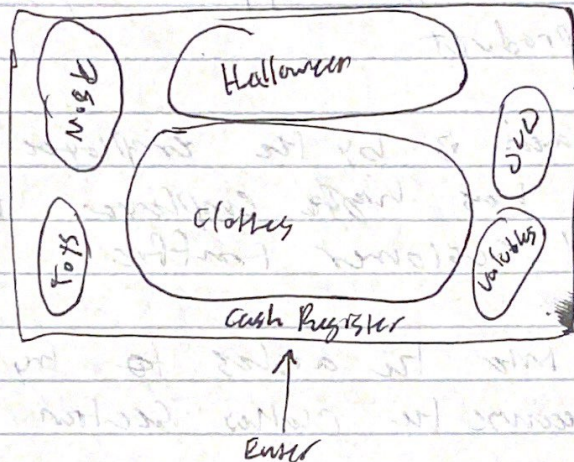 Halloween
DVD
Clothes
Toys
Valuables
Cash Register
Enter